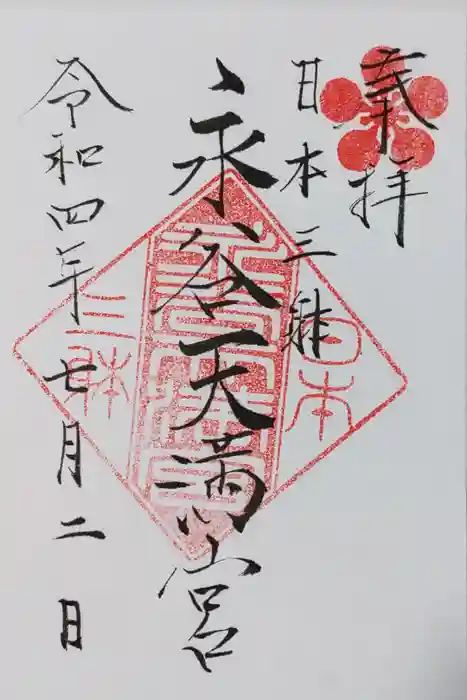 奉拝
日本三躰
永谷天満宮
令和四年七月二日
日本
三躰